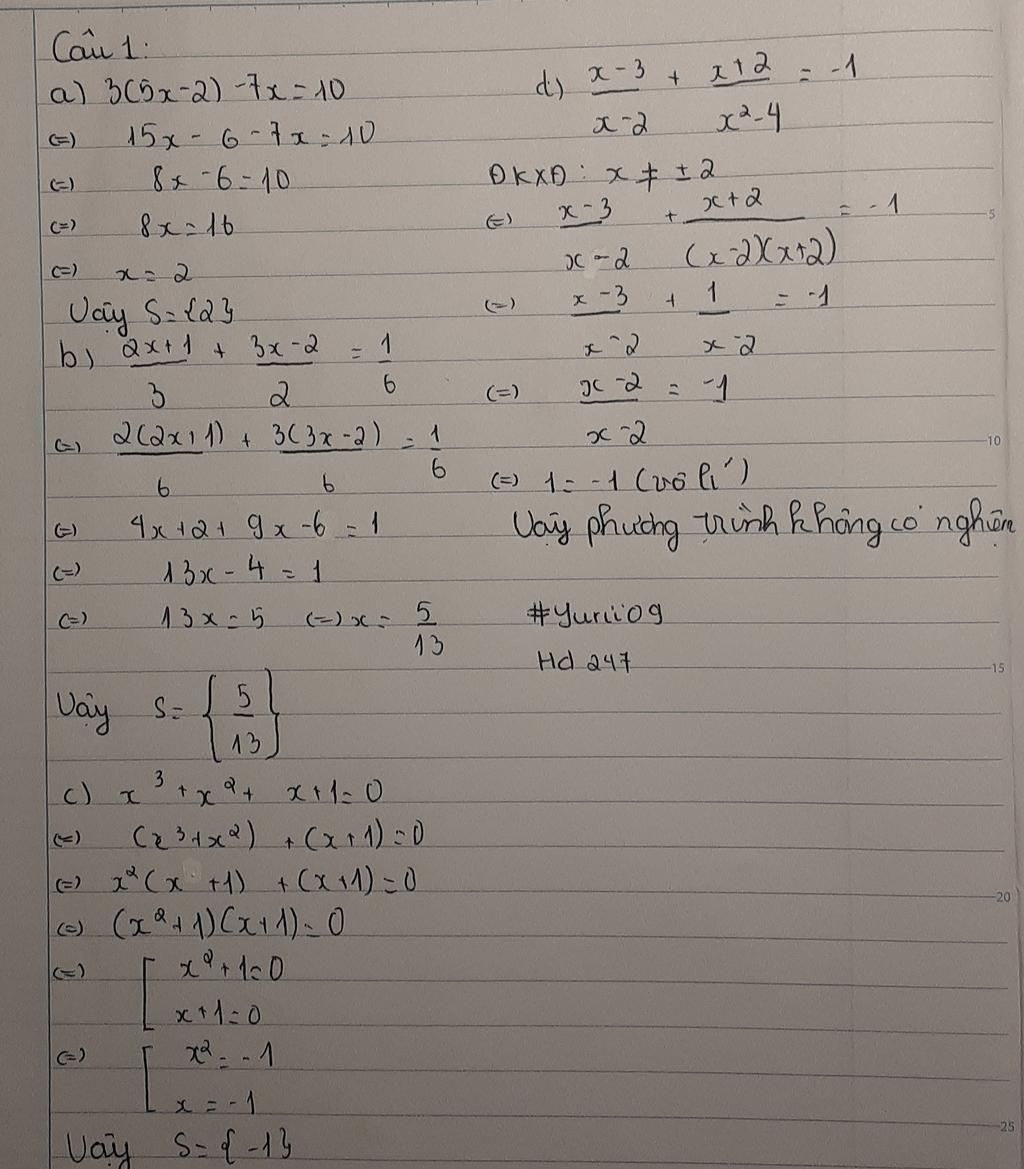 Câu 1:
a) 3(5x-2) -7x = 10
(=) 15x - 6 - 7x = 10
(=) 8x - 6 = 10
(=) 8x = 16
(=) x = 2
Vậy S = {2}
b) (2x+1)/3 + (3x-2)/2 = 1/6
(=) 2(2x+1)/6 + 3(3x-2)/6 = 1/6
(=) 4x + 2 + 9x - 6 = 1
(=) 13x - 4 = 1
(=) 13x = 5 (=) x = 5/13
Vậy S = {5/13}
c) x³ + x² + x + 1 = 0
(=) (x³ + x²) + (x + 1) = 0
(=) x²(x + 1) + (x + 1) = 0
(=) (x² + 1)(x + 1) = 0
(=) [ x² + 1 = 0
x + 1 = 0
(=) [ x² = -1
x = -1
Vậy S = {-1}
d) (x-3)/(x-2) + (x+2)/(x²-4) = -1
ĐKXĐ : x ≠ ± 2
(=) (x-3)/(x-2) + (x+2)/((x-2)(x+2)) = -1
(=) (x-3)/(x-2) + 1/(x-2) = -1
(=) (x-2)/(x-2) = -1
(=) 1 = -1 (vô lí)
Vậy phương trình không có nghiệm
#Yurii09
Hd 247
5
10
15
20
25